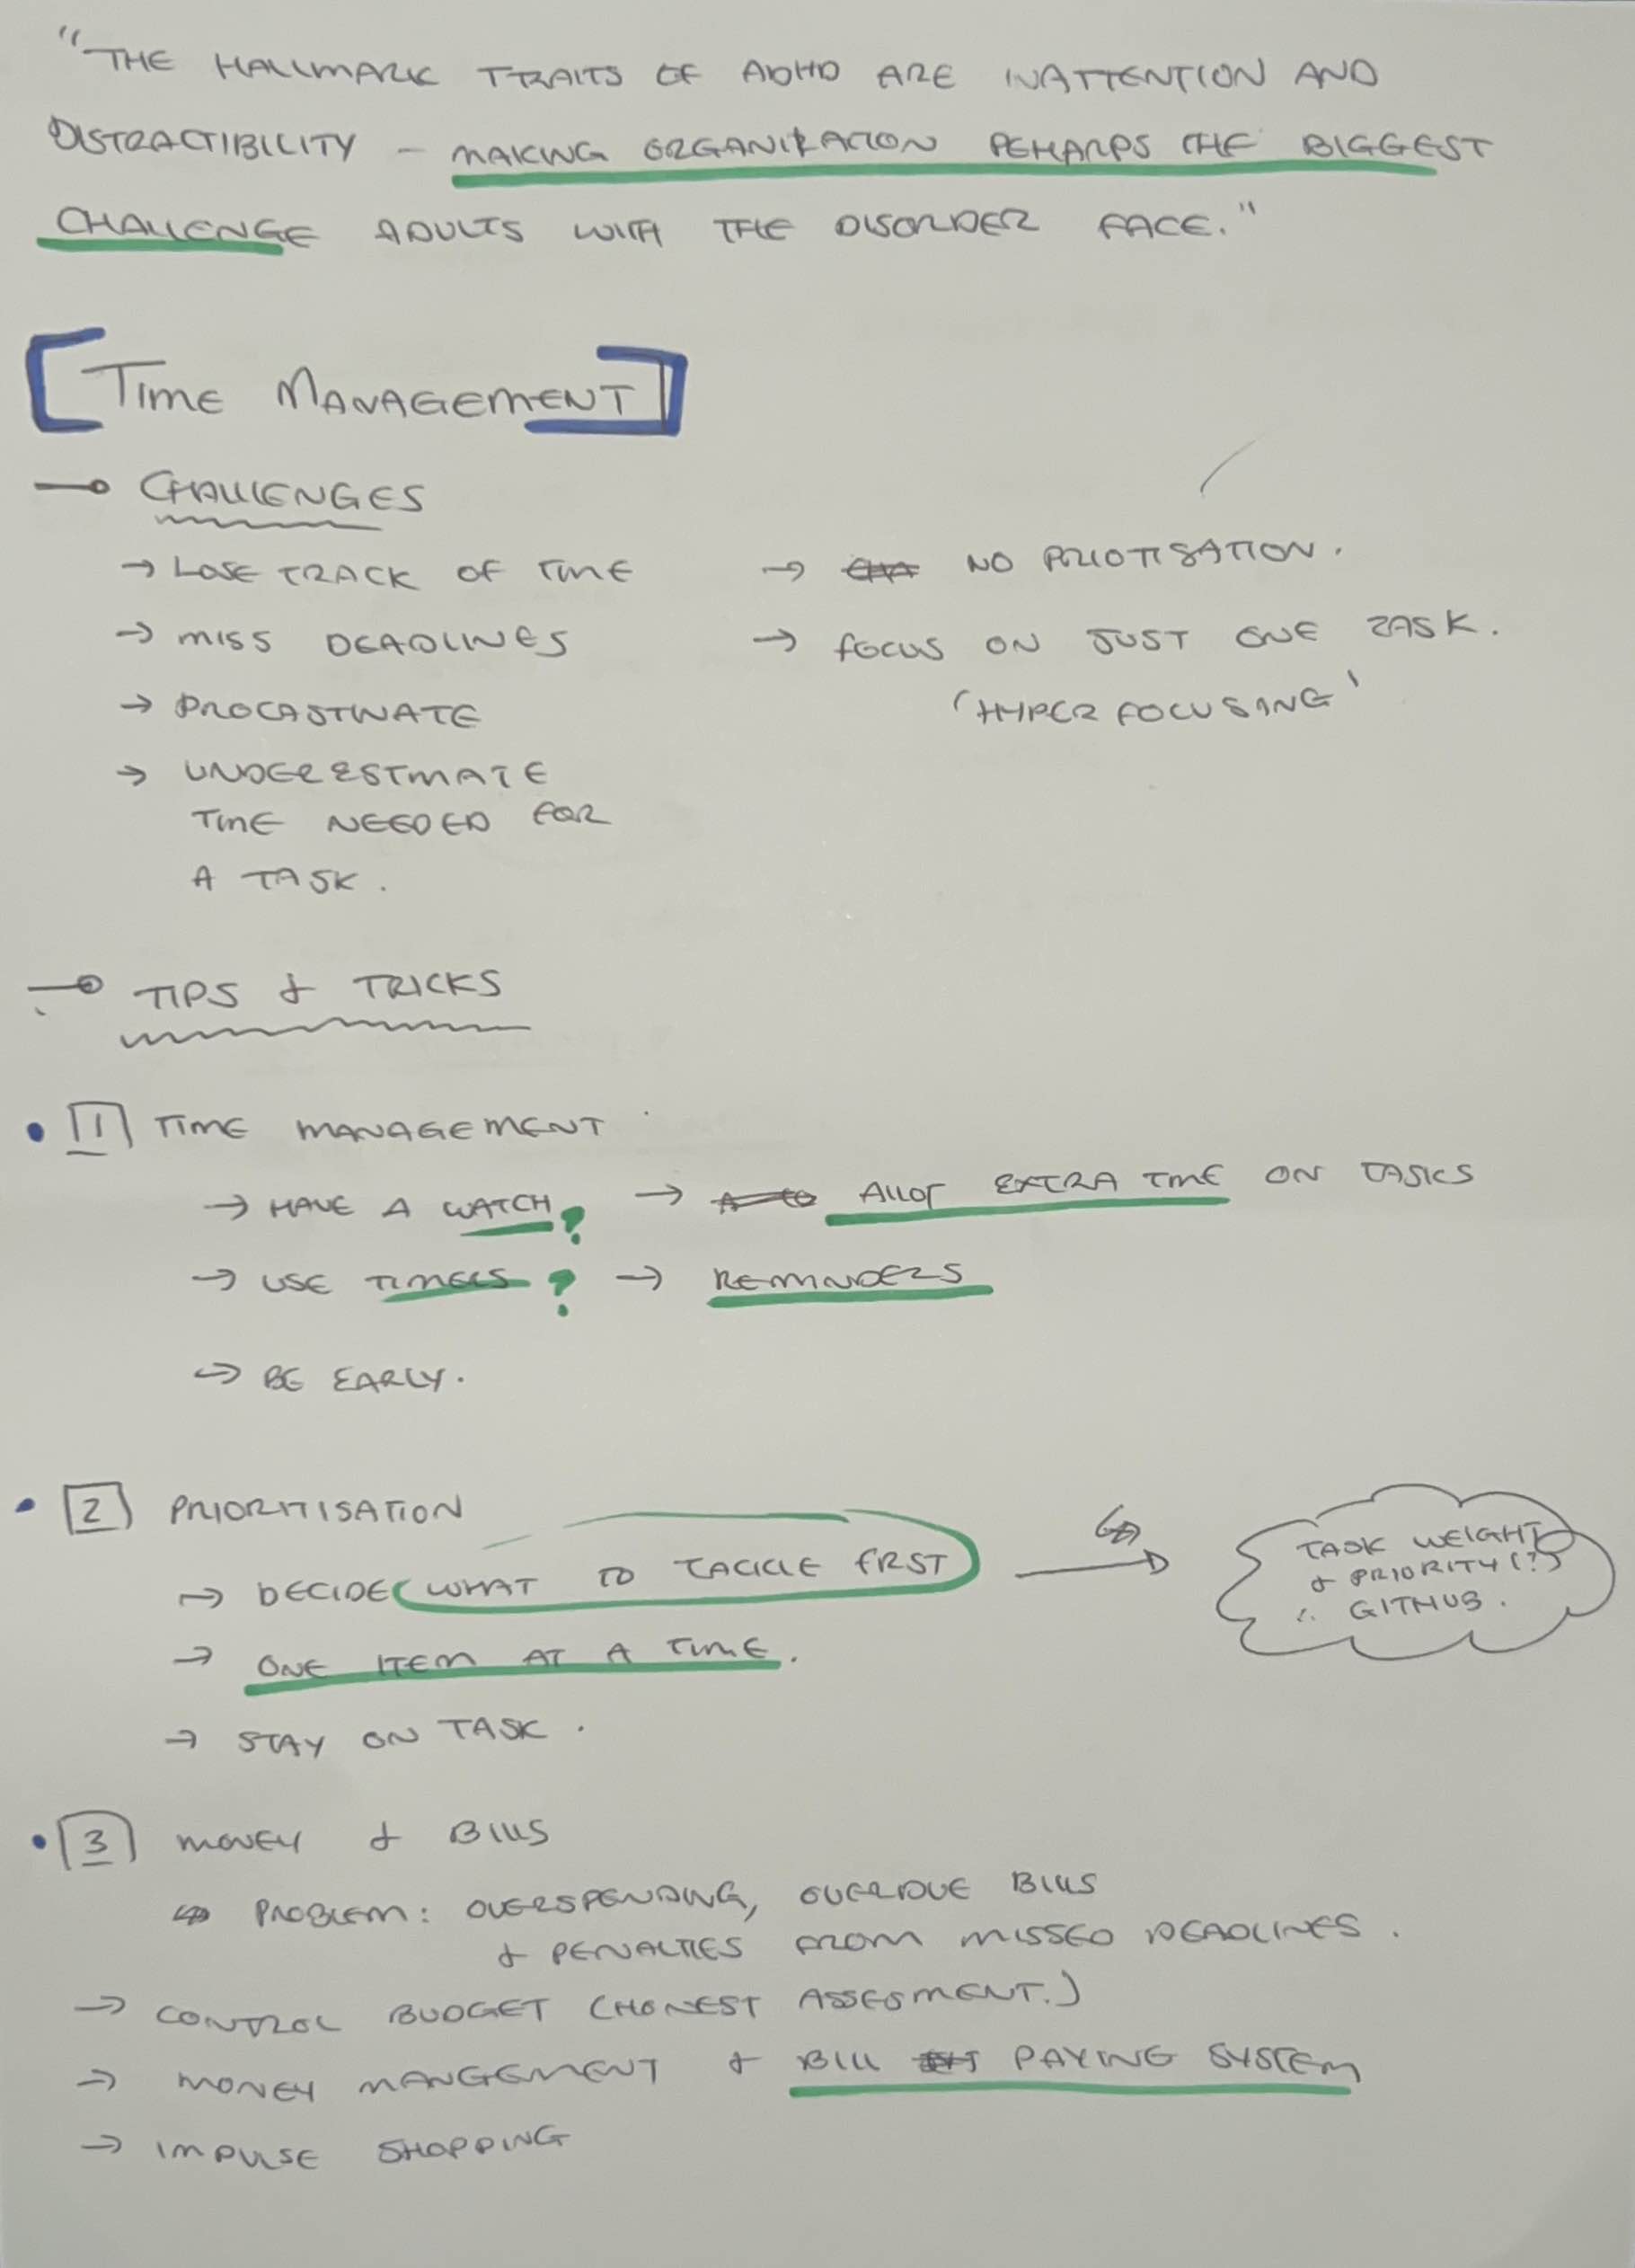 "THE HALLMARK TRAITS OF ADHD ARE INATTENTION AND
DISTRACTIBILITY - MAKING ORGANIZATION PEHARPS THE BIGGEST
CHALLENGE ADULTS WITH THE DISORDER FACE."
[TIME MANAGEMENT]
CHALLENGES
→ LOSE TRACK OF TIME
→ MISS DEADLINES
→ PROCASTINATE
→ UNDERESTIMATE
TIME NEEDED FOR
A TASK.
→ NO PRIOTISATION.
→ FOCUS ON JUST ONE TASK.
'HYPER FOCUSING'
TIPS & TRICKS
• 1 TIME MANAGEMENT
→ HAVE A WATCH? → ALLOT EXTRA TIME ON TASKS
→ USE TIMERS? → REMINDERS
→ BE EARLY.
• 2 PRIORITISATION
→ DECIDE WHAT TO TACKLE FIRST →
TASK WEIGHT
& PRIORITY(?)
∴ GITHUB.
→ ONE ITEM AT A TIME.
→ STAY ON TASK.
• 3 MONEY & BILLS
↪ PROBLEM: OVERSPENDING, OVERDUE BILLS
& PENALTIES FROM MISSED DEADLINES.
→ CONTROL BUDGET (HONEST ASSESMENT.)
→ MONEY MANGEMENT & BILL PAYING SYSTEM
→ IMPULSE SHOPPING